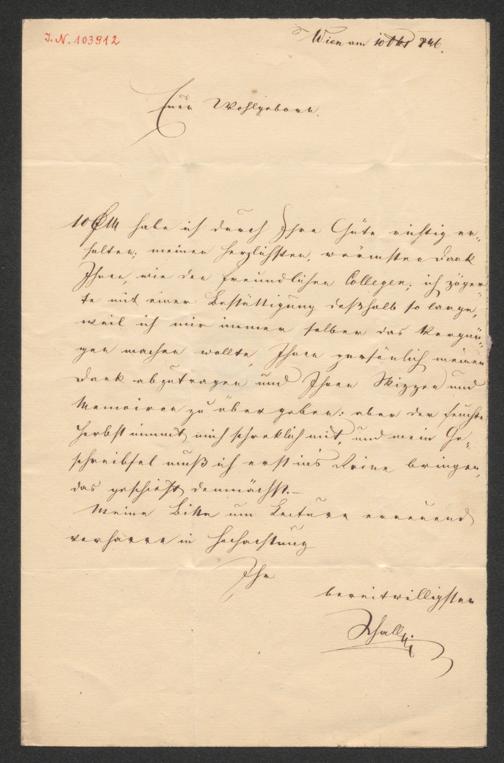 I.N. 103912
Wien am 10 Okt 846.
Euer Wohlgeboren.
10 habe ich durch Ihre Güte richtig er-
halten; meinen herzlichsten, wärmsten Dank
Ihnen, wie den freundlichen Collegen; ich zöger-
te mit einer Bestättigung deßhalb so lange,
weil ich mir immer selber das Vergnü-
gen machen wollte, Ihnen persönlich meinen
Dank abzutragen und Ihnen Skizzen und
Memoiren zu übergeben: aber der feuchte
Herbst nimmt mich schreklich mit, und mein Ge-
schreibsel muß ich erst in's Reine bringen,
das geschieht demnächst.—
Meine Bitte um Lecture erneuend
verharre in Hochachtung
Ihr
bereitwilligster